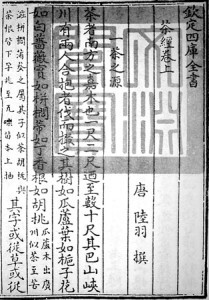 欽定四庫全書
茶經卷上
唐 陸羽 撰
一茶之源
茶者南方之嘉木也一尺二尺迺至數十尺其巴山峽
川有兩人合抱者伐而掇之其樹如瓜蘆葉如梔子花
如白薔薇實如栟櫚蒂如丁香根如胡桃瓜蘆木出廣州似茶至苦
澁栟櫚蒲葵之屬其子似茶胡桃與茶根皆下孕兆至瓦礫苗木上抽其字或從草或從